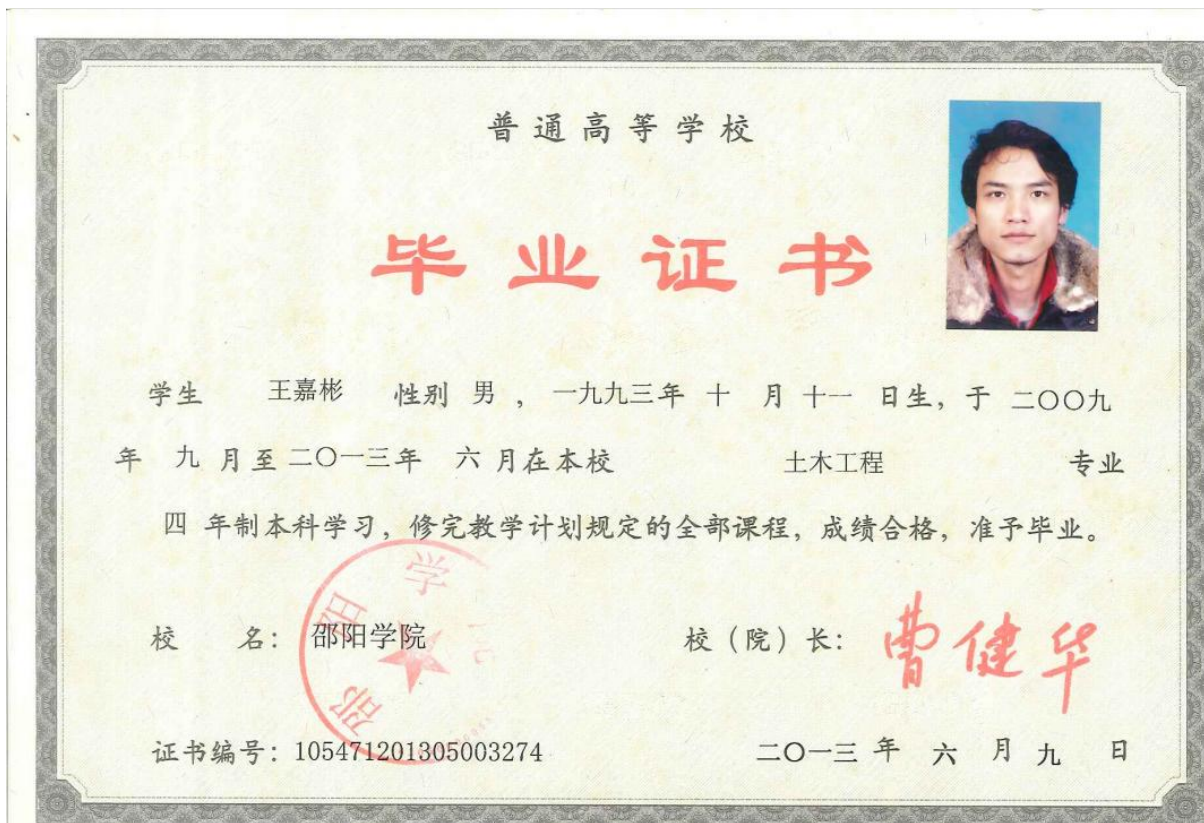 普通高等学校
毕业证书
学生 王嘉彬 性别 男 ，一九九三年 十 月 十一 日生，于 二〇〇九
年 九 月至二〇一三年 六 月在本校 土木工程 专业
四 年制本科学习，修完教学计划规定的全部课程，成绩合格，准予毕业。
校 名：邵阳学院 校（院）长：曹健华
邵阳学院
证书编号：105471201305003274 二〇一三 年 六 月 九 日